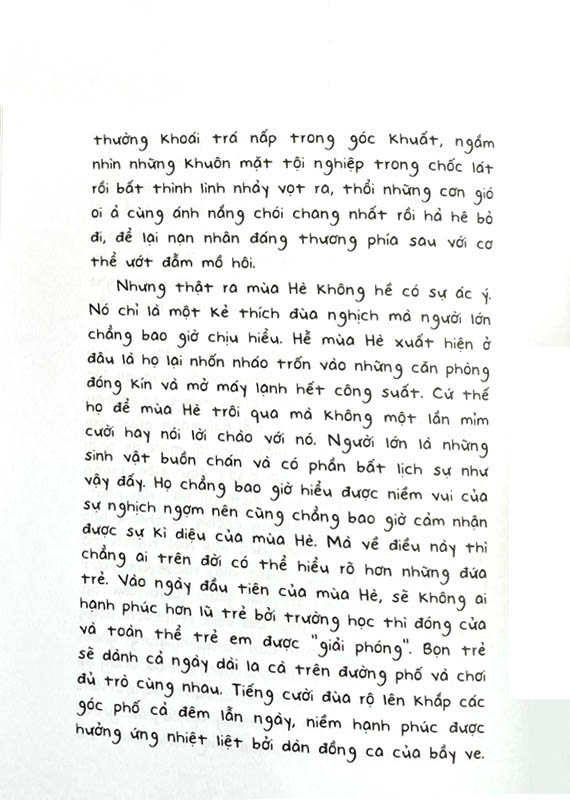 thưởng khoái trá nấp trong góc khuất, ngắm
nhìn những khuôn mặt tội nghiệp trong chốc lát
rồi bất thình lình nhảy vọt ra, thổi những cơn gió
oi ả cùng ánh nắng chói chang nhất rồi hả hê bỏ
đi, để lại nạn nhân đáng thương phía sau với cơ
thể ướt đẫm mồ hôi.
Nhưng thật ra mùa Hè không hề có sự ác ý.
Nó chỉ là một kẻ thích đùa nghịch mà người lớn
chẳng bao giờ chịu hiểu. Hễ mùa Hè xuất hiện ở
đâu là họ lại nhốn nháo trốn vào những căn phòng
đóng kín và mở máy lạnh hết công suất. Cứ thế
họ để mùa Hè trôi qua mà không một lần mỉm
cười hay nói lời chào với nó. Người lớn là những
sinh vật buồn chán và có phần bất lịch sự như
vậy đấy. Họ chẳng bao giờ hiểu được niềm vui của
sự nghịch ngợm nên cũng chẳng bao giờ cảm nhận
được sự kì diệu của mùa Hè. Mà về điều này thì
chẳng ai trên đời có thể hiểu rõ hơn những đứa
trẻ. Vào ngày đầu tiên của mùa Hè, sẽ không ai
hạnh phúc hơn lũ trẻ bởi trường học thì đóng cửa
và toàn thể trẻ em được "giải phóng". Bọn trẻ
sẽ dành cả ngày dài la cà trên đường phố và chơi
đủ trò cùng nhau. Tiếng cười đùa rộ lên khắp các
góc phố cả đêm lẫn ngày, niềm hạnh phúc được
hưởng ứng nhiệt liệt bởi dàn đồng ca của bầy ve.